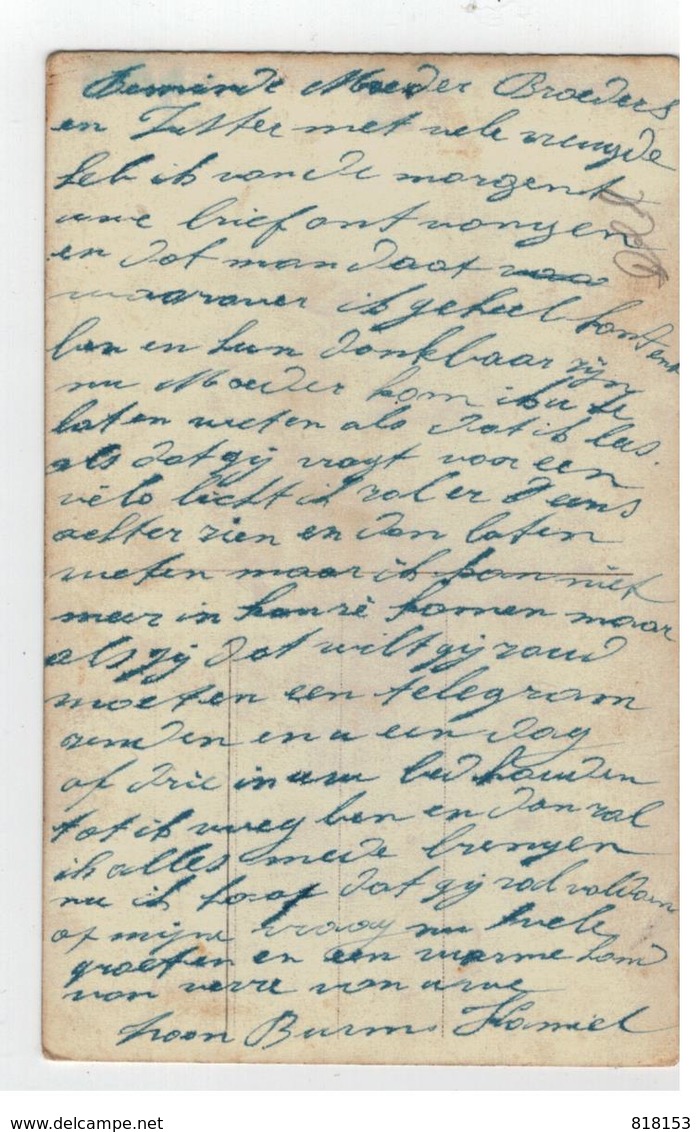 Beminde Moeder Broeders
en Zuster met vele vreugde
heb ik van de morgent
uwe brief ont vangen
en dat mandaat
waarover ik geheel kontent
ben en hun dankbaar zijn
nu Moeder kom ik u te
laten weten als dat ik las
als dat gij vragt voor een
velo licht ik zal er d eens
achter zien en dan laten
weten maar ik kan niet
meer in konzé komen maar
als gij dat wilt gij zoud
moeten een telegram
zenden en u een dag
of drie in uw bed houden
tot ik weeg ben en dan zal
ik alles mede brengen
nu ik hoop dat gij zal voldoen
op mijne vraag nu vele
groeten en een warme hand
van verre van uwe
zoon Burms Kamiel
delcampe.net
818153